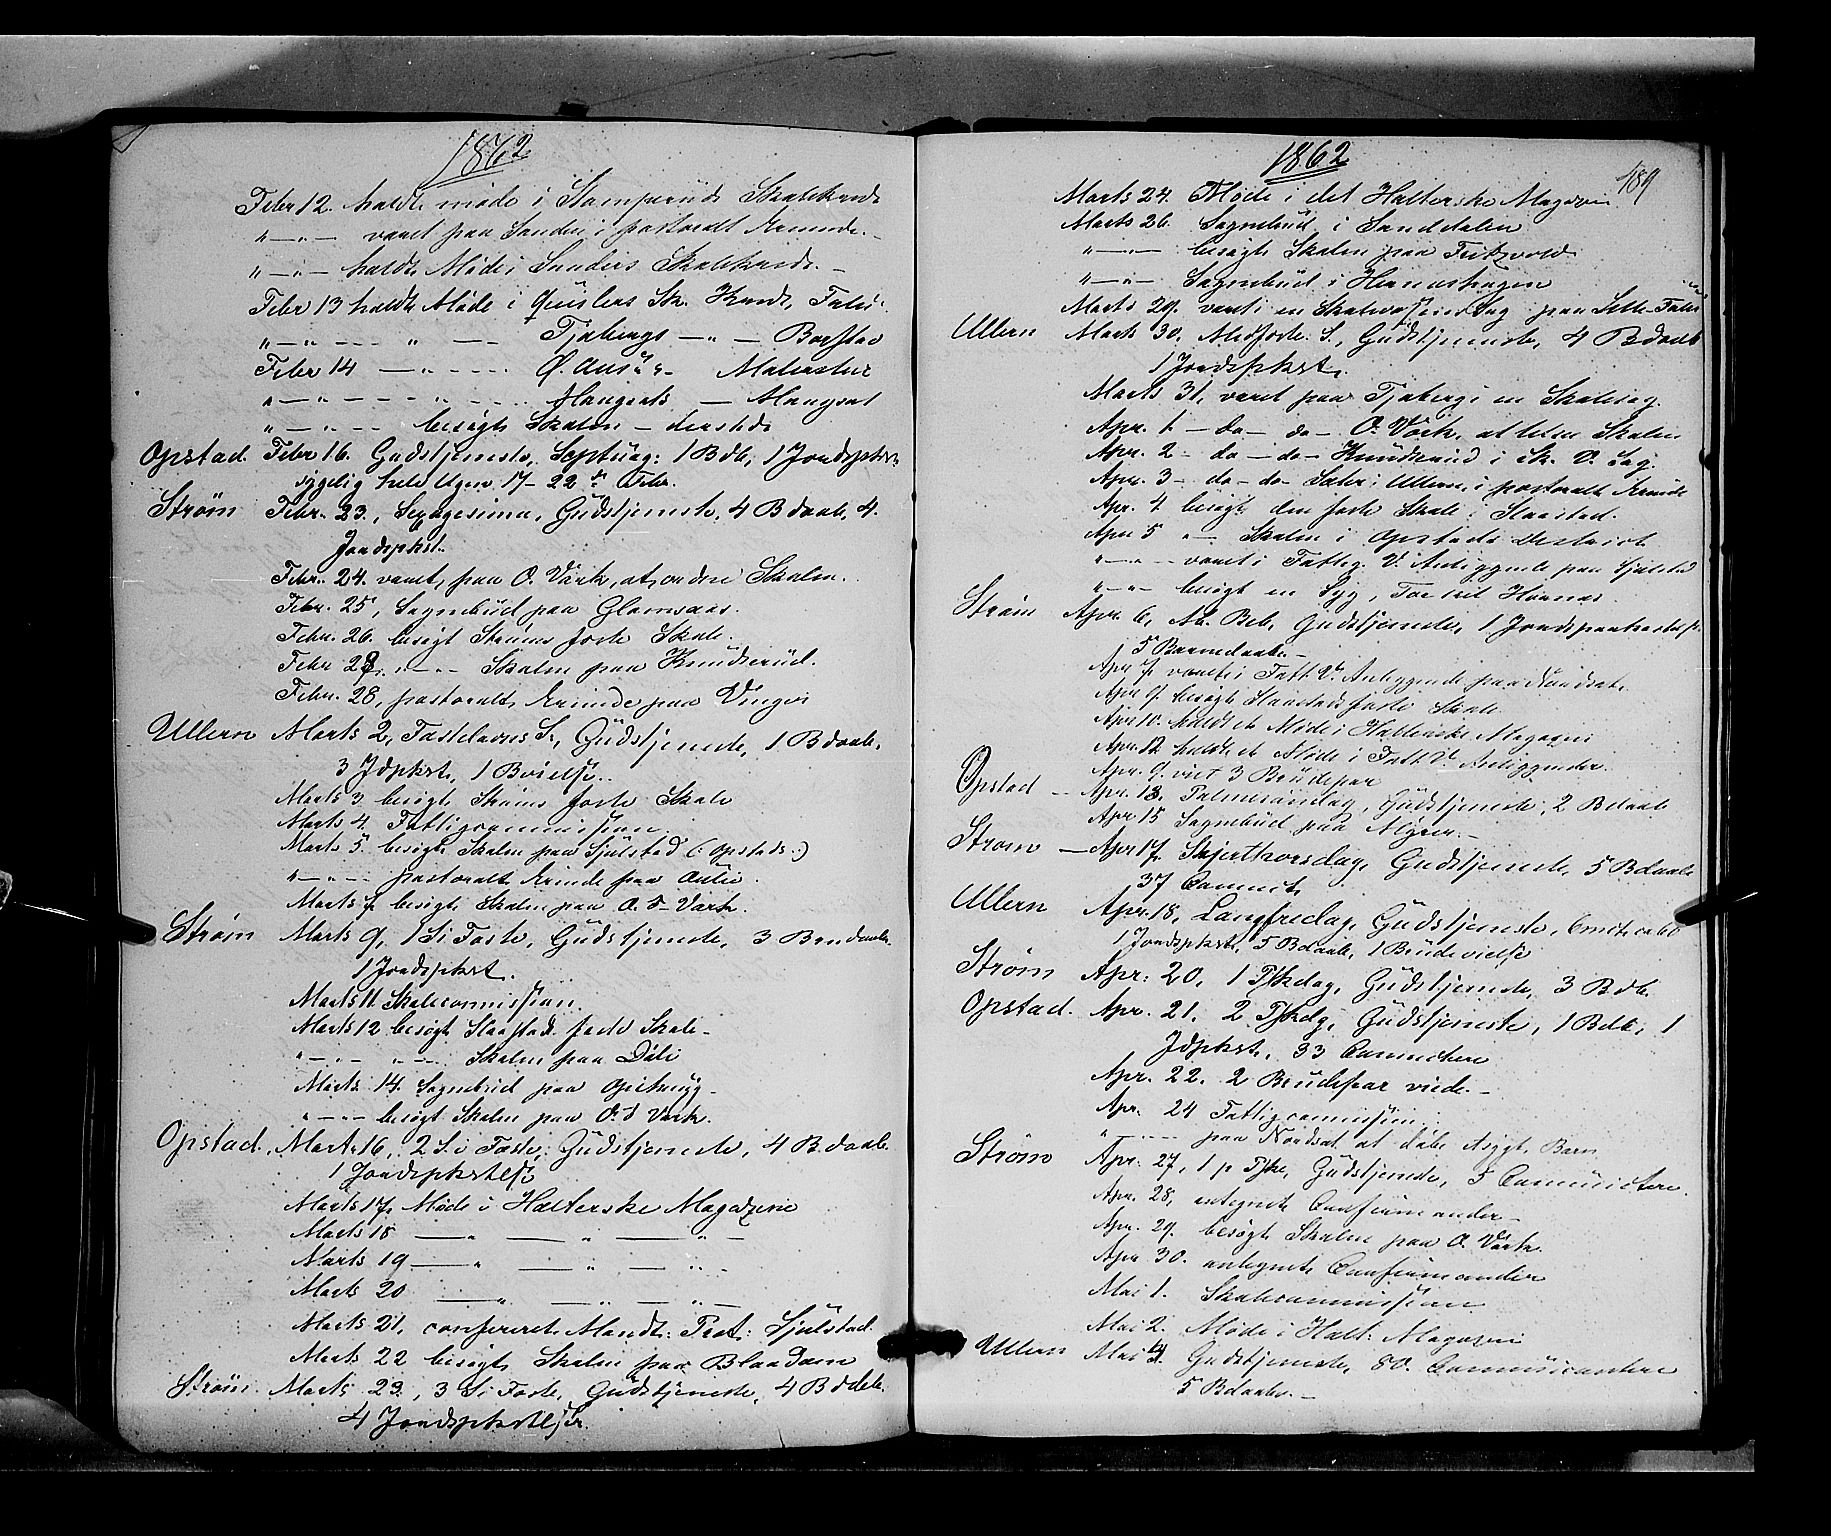 1862
Febr 12. holdt møde i Skolekreds
" — " — været paa Sanden i pastoralt Erinde. —
" — " — holdt Møde i Sanders Skolekreds. —
Febr 13 holdt Møde i Sk. Kreds,
" — " — " — Tjaberg — " —
Febr 14 — " —
" — " — Mangsæt — Mangsæt
" — " — besøgt Skolen — dersteds
Opstad. Febr 16. Gudstjeneste, Septuag: 1 Bdb, 1 Jordspkst.
sygelig hele Ugen 17 – 22 Febr.
Strøm Febr. 23, Sexagesima, Gudstjeneste, 4 Bdaab, 4.
Jordspkst.
Febr. 24. været paa O. Værk, at ordne Skolen.
Febr. 25, Sognebud paa Glomsaas.
Febr. 26. besøgt Strøms faste Skole.
Febr 28. " — " — Skolen paa Knudserud.
Febr. 28, pastoralt Erinde paa Vinger
Ullern Marts 2, Fastelavns S., Gudstjeneste, 1 Bdaab,
3 Jdpkst, 1 Vielse.
Marts 3 besøgt Strøms faste Skole
Marts 4. Fattigcommission
Marts 5. besøgt Skolen paa Sjulstad (: Opstads :)
" — " — pastoralt Erinde paa
Marts 7 besøgt Skolen paa O. S. Værk.
Strøm Marts 9, 1 S. i Faste, Gudstjeneste, 3 Bdaab.
1 Jordspkst.
Marts 11 Skolecommission
Marts 12 besøgt Slaastad faste Skole —
" — " — " — Skolen paa Dæli
Marts 14. Sognebud paa
" — " — besøgt Skolen paa O. S Værk.
Opstad. Marts 16, 2 S. i Faste, Gudstjeneste, 4 Bdaab.
1 Jordspkstelse
Marts 17, Møde i Halterske Magazine
Marts 18 — " — " — " —
Marts 19 — " — " — " —
Marts 20 — " — " — " —
Marts 21, confereret Mandt: Prot: Sjulstad.
Marts 22 besøgt Skolen paa Blaadam
Strøm. Marts 23, 3 S. i Faste, Gudstjeneste, 4 Bdaab.
4 Jordspkstelser.
1862
189
Marts 24. Møde i det Halterske Magazin
Marts 26. Sognebud i Sanddalen
" — " — besøgt Skolen paa Fritzvold
" — " — Sognebud i
Marts 29. været i en Skolevæsensag paa
Ullern Marts 30, Midfaste. S., Gudstjeneste, 4 Bdaab
1 Jordspkst.
Marts 31, været paa Tjaberg i en Skolesag.
Apr. 1 — do — do — O. Værk, at lede Skolen
Apr. 2 — do — do — Knudserud i Sk. V. Sag.
Apr. 3 — do — do Sæter i Ullern, i pastoralt Erinde
Apr. 4 besøgt den faste Skole i Slaastad.
Apr 5 " — Skolen i Opstads District
" — " — været i Fattig. V. Anliggende paa Sjulstad
" — " — besøgt en Syg,
Strøm Apr. 6, Gudstjeneste, 1 Jordspaakastelse.
5 Barnedaab. —
Apr 7, været i Fatt. V. Anliggende paa Nordset.
Apr 9. besøgt Slaastad faste Skole
Apr 10. holdt et Møde i Halterske Magazin
Apr. 12 holdt et Møde i Fatt. V. Anliggender.
Apr. 9. viet 3 Brudepar
Opstad — Apr. 13. Palmesøndag, Gudstjeneste, 2 Bdaab
Apr 15 Sognebud paa Myrer. —
Strøm — Apr 17, Skjærthorsdag, Gudstjeneste, 5 Bdaab
37 Commct.
Ullern Apr. 18, Langfredag, Gudstjeneste, Cmct. ca 60
1 Jordspkst, 5 Bdaab, 1 Brudevielse
Strøm Apr. 20, 1 Pskdag, Gudstjeneste, 3 Bdb.
Opstad. Apr. 21. 2 Pskdg, Gudstjeneste, 1 Bdb, 1
Jdpkst, 33 Commctere
Apr. 22. 2 Brudepar viede. —
Apr. 24 Fattigcommission.
" — " — paa Nordset at døbe et sygt Barn
Strøm Apr. 27, 1 p Pske, Gudstjeneste, 5 Communictere.
Apr. 28, antegnet Confirmander —
Apr. 29. besøgt Skolen paa O. Værk.
Apr 30. antegnet Confirmander
Mai 1. Skolecommission
Mai 2. Møde i Halt: Magazin
Ullern Mai 4. Gudstjeneste, 80. Communicantere
5 Bdaab. —